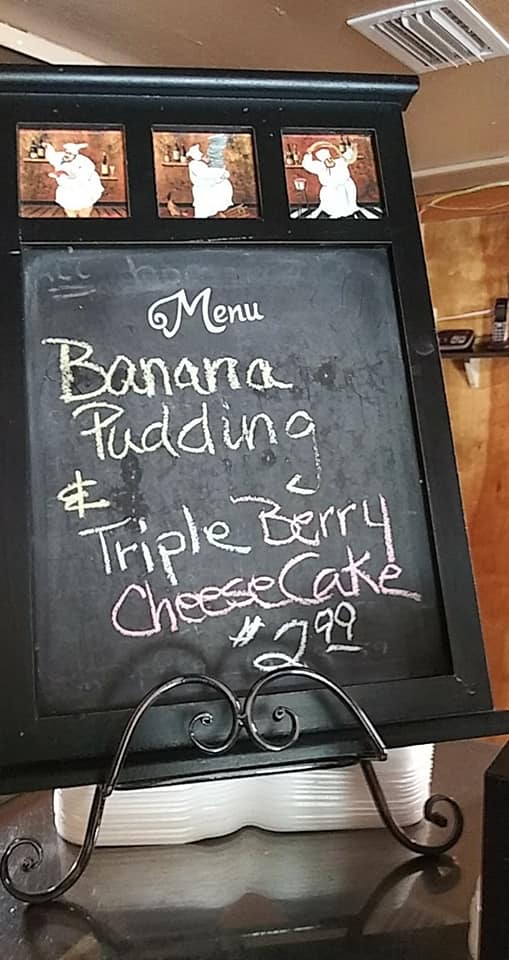 Menu
Banana
Pudding
&
Triple Berry
CheeseCake
$2.99